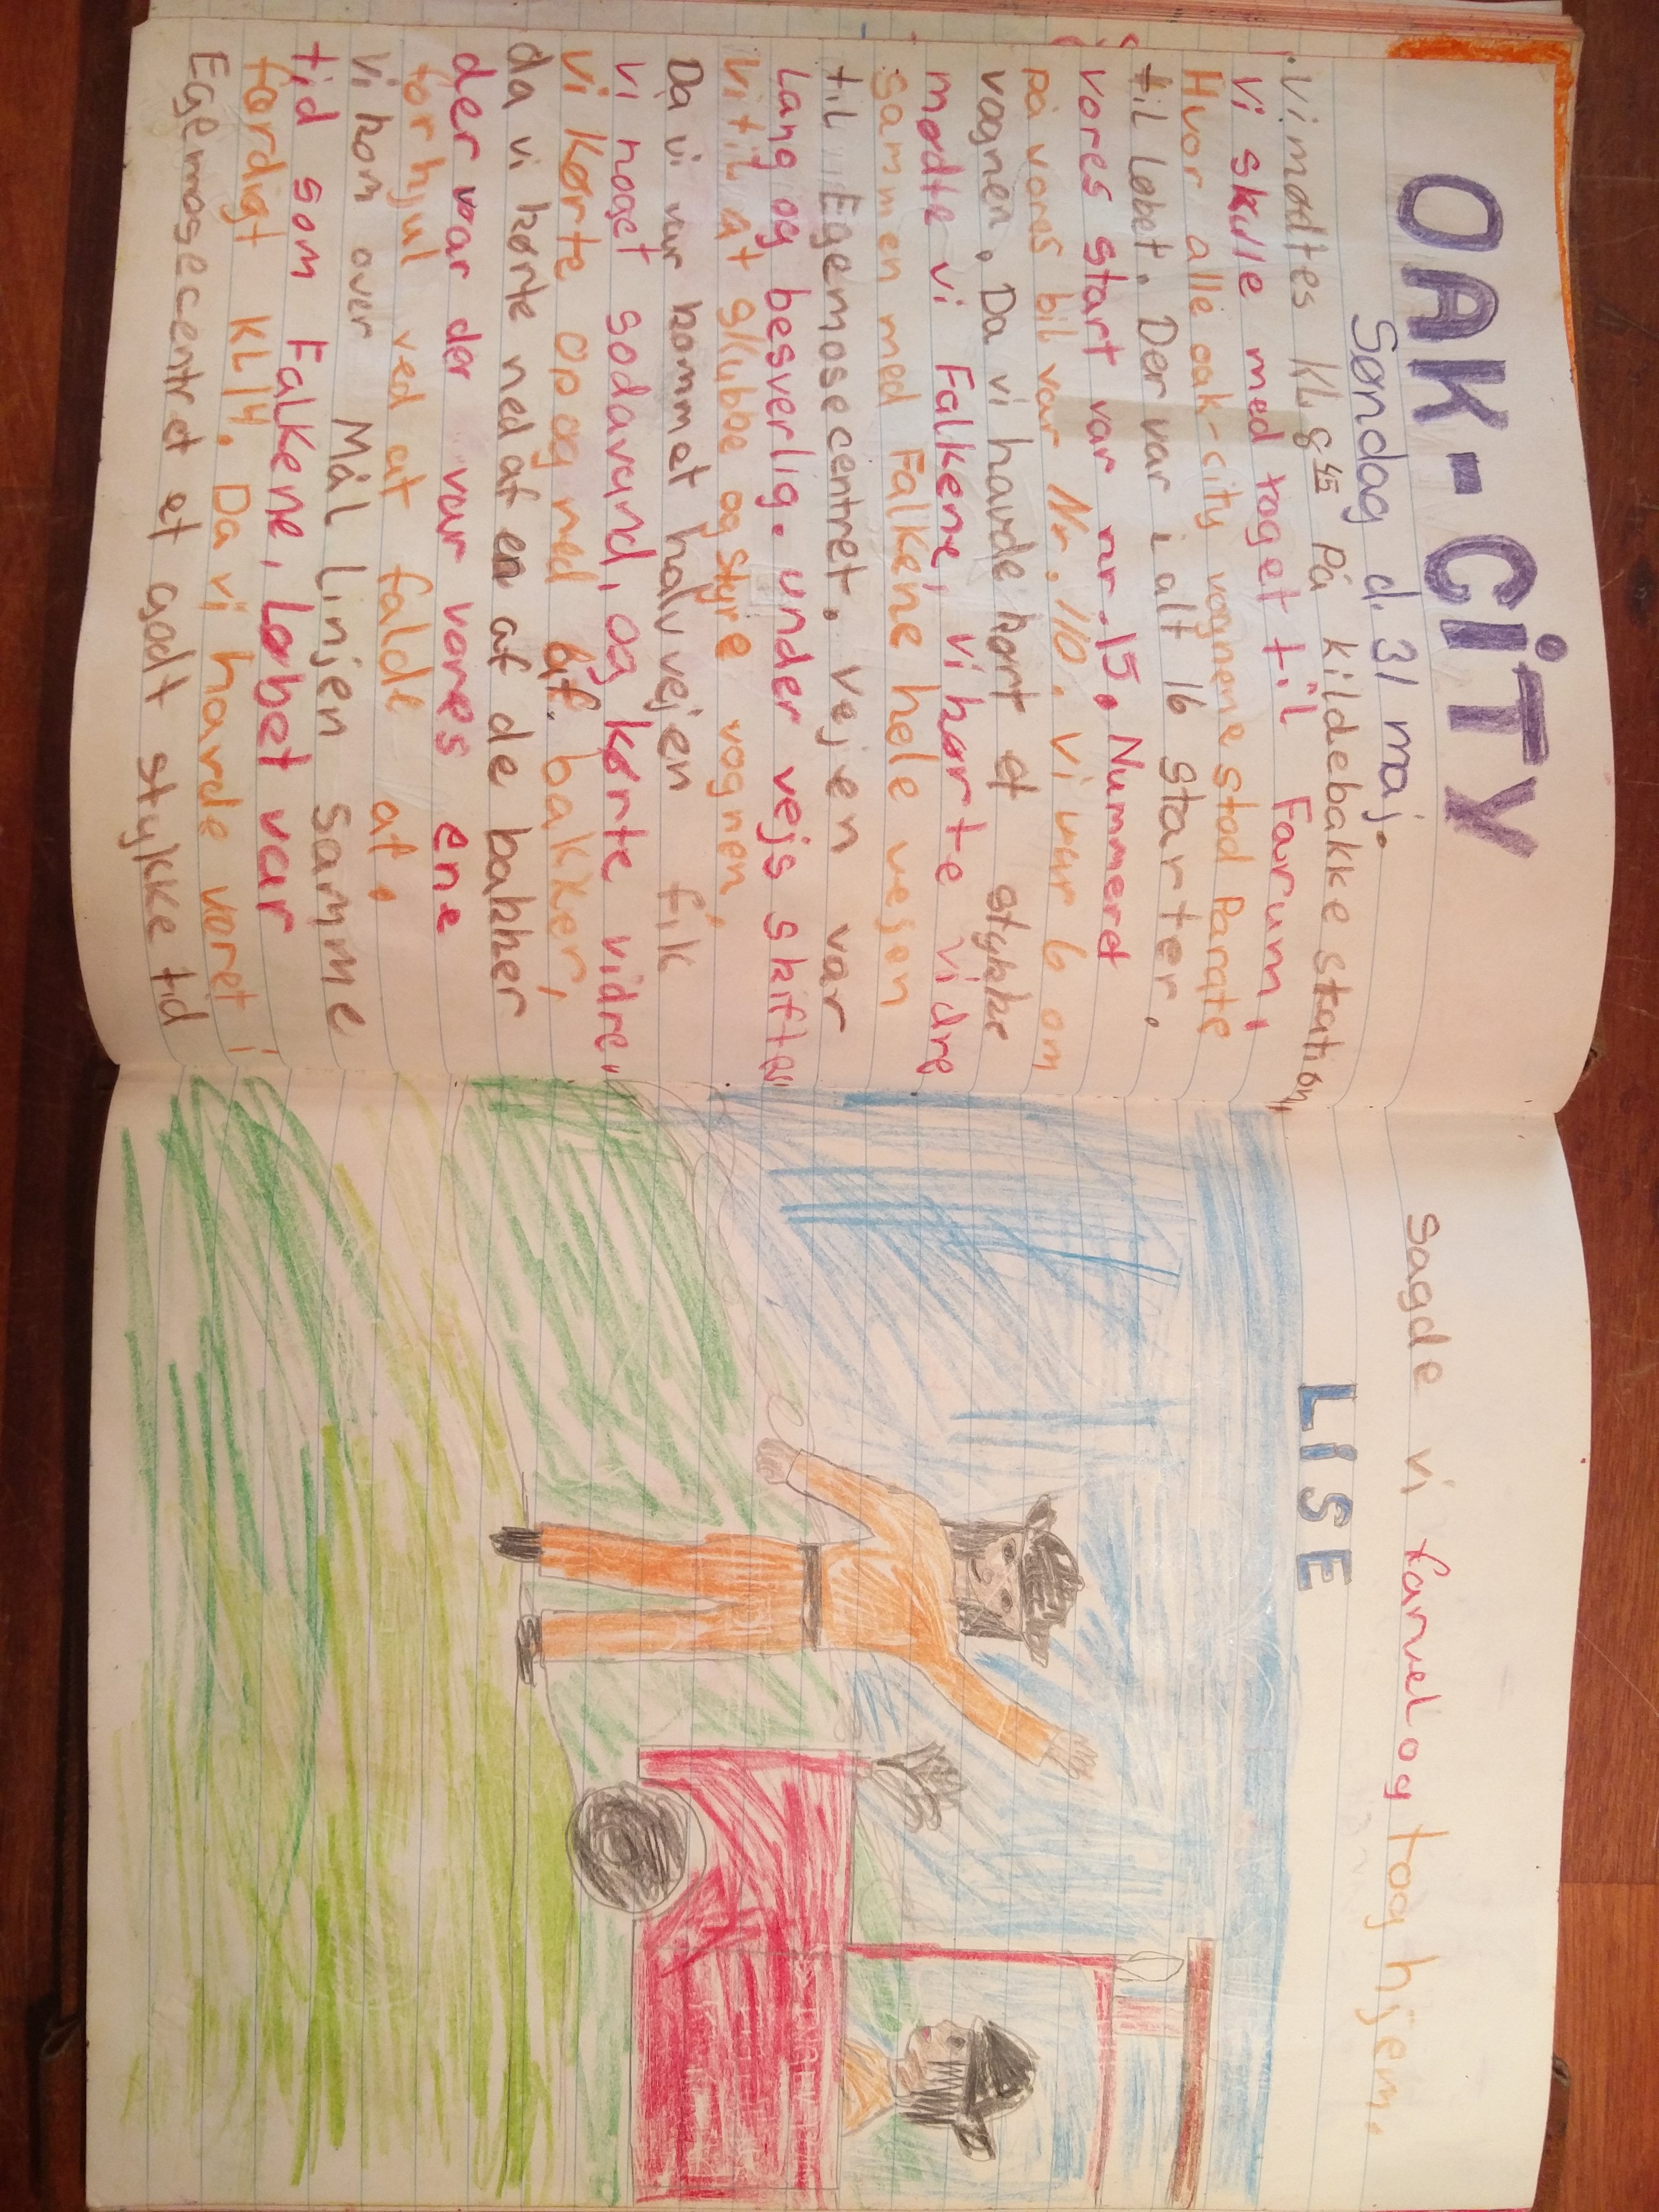 OAK-CITY
Søndag d. 31 maj.
Vi mødtes kl. 8 45 På kildebakke station,
Vi skulle med toget til Farum,
Hvor alle oak-city vognene stod Parate
til løbet. Der var i alt 16 starter.
vores start var nr. 15. Nummeret
på vores bil var Nr. 110. Vi var 6 om
vognen. Da vi havde kørt et stykke
mødte vi Falkene, vi kørte vidre
sammen med Falkene hele vejen
til Egemosecentret. Vejen var
Lang og besverlig. under vejs skiftes
vi til at skubbe og styre vognen.
Da vi var kommet halvvejen fik
vi noget sodavand, og kørte vidre,
Vi kørte op og ned af bakker,
da vi kørte ned af en af de bakker
der var der var vores ene
forhjul ved at falde af.
Vi kom over Mål Linjen samme
tid som Falkene, Lørbet var
færdigt kl 14. Da vi havde været i
Egemosecentret et godt stykke tid
sagde vi farvel og tog hjem.
LISE